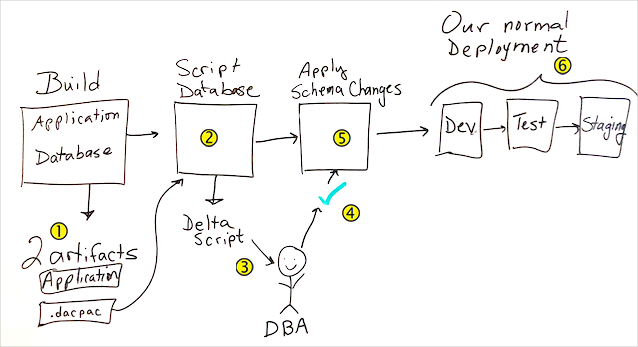 Build
Application
Database
1
2 artifacts
Application
.dacpac
Script
Database
2
Delta
Script
3
DBA
4
Apply
Schema Changes
5
Our normal
Deployment
6
Dev
Test
Staging